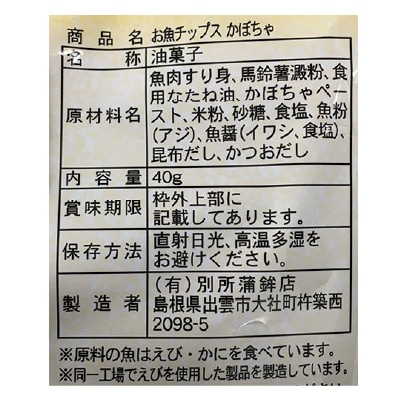 商品名 お魚チップス かぼちゃ
名称 油菓子
原材料名 魚肉すり身、馬鈴薯澱粉、食
用なたね油、かぼちゃペー
スト、米粉、砂糖、食塩、魚粉
(アジ)、魚醤(イワシ、食塩)、
昆布だし、かつおだし
内容量 40g
賞味期限 枠外上部に
記載してあります。
保存方法 直射日光、高温多湿を
お避けください。
製造者 (有)別所蒲鉾店
島根県出雲市大社町杵築西
2098-5
※原料の魚はえび・かにを食べています。
※同一工場でえびを使用した製品を製造しています。